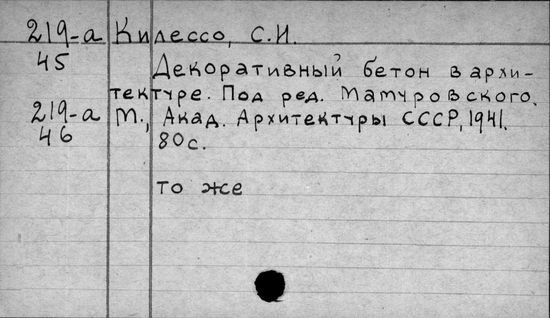 219-а Килессо, С.И.
45
Декоративный бетон в архи-
тектуре. Под ред. Мацуровского.
219-а М., Акад. Архитектуры СССР, 1941.
46 80с.
то же